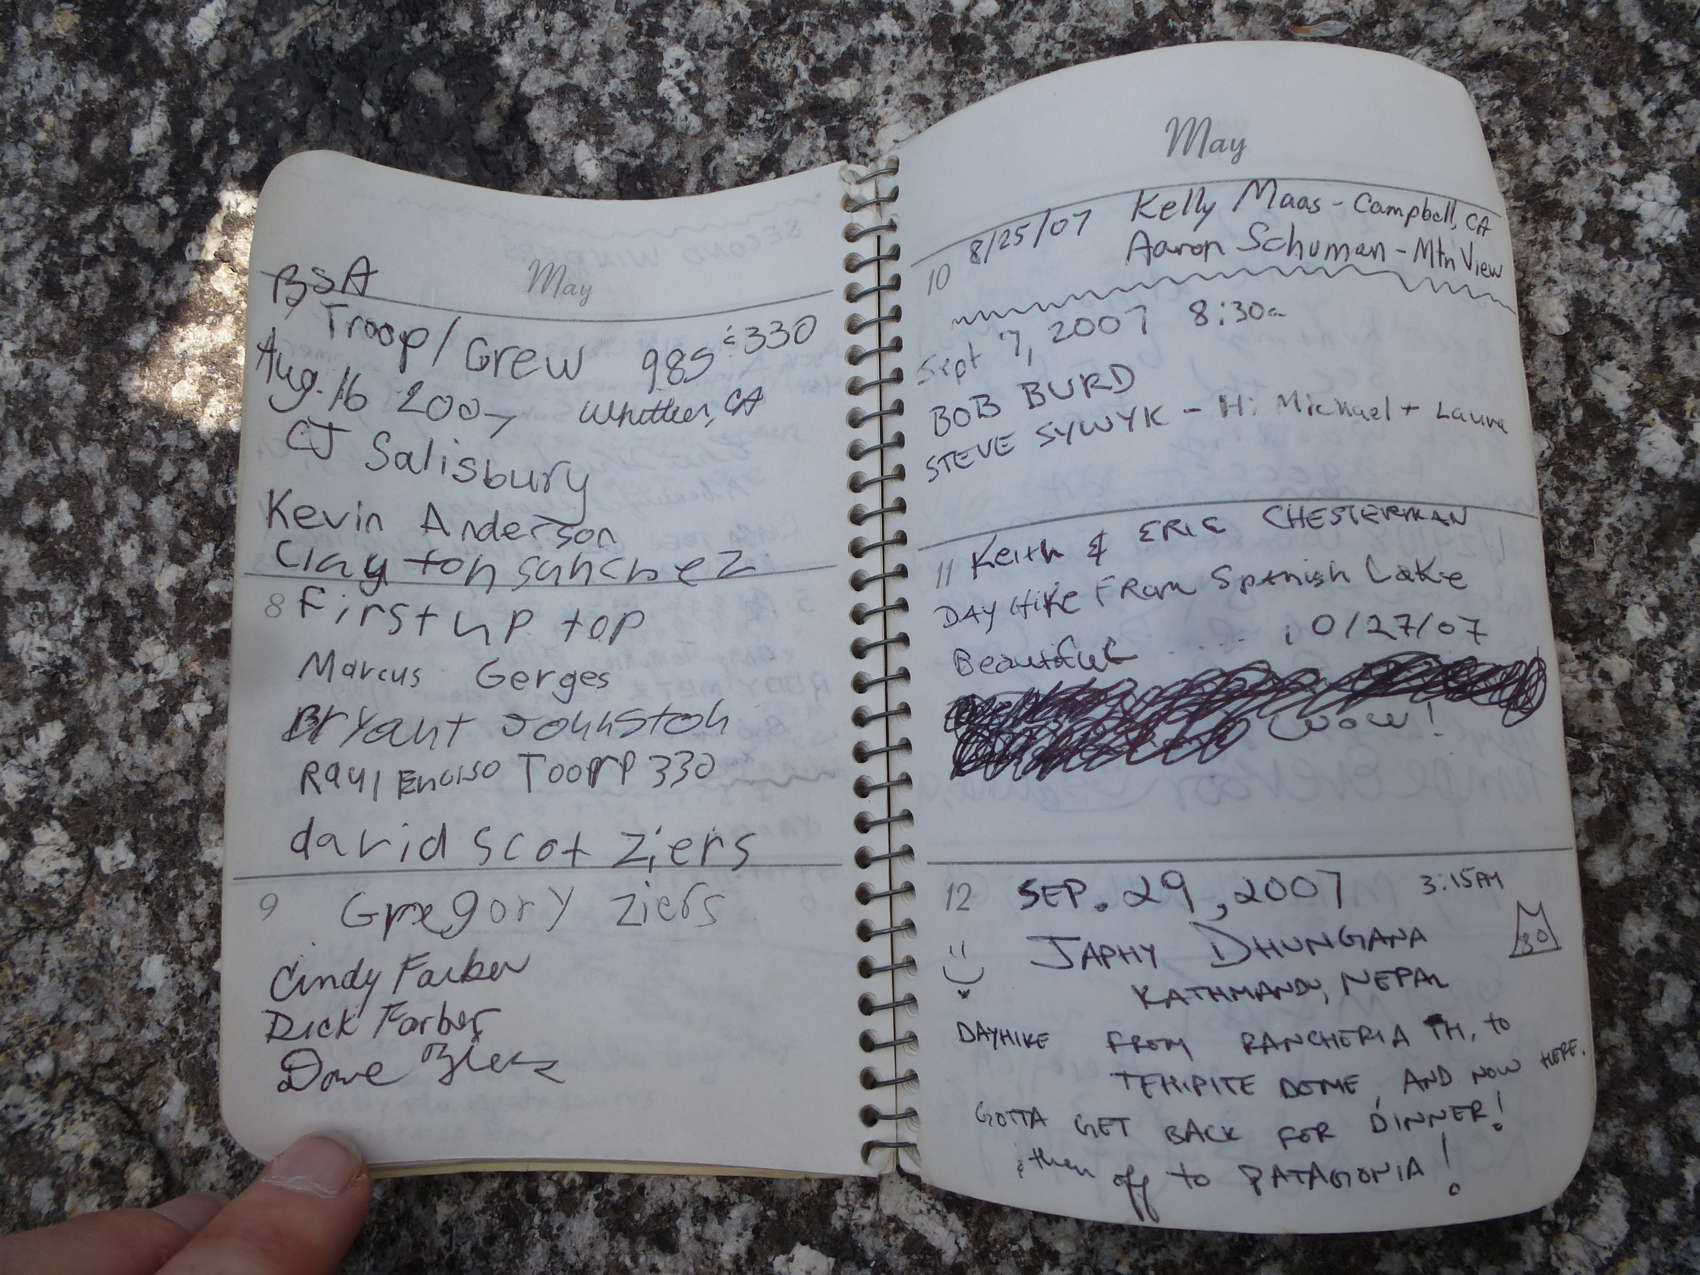 May
BSA
Troop/Crew 985 & 330
Aug. 16 2007 Whittier, CA
CJ Salisbury
Kevin Anderson
Clayton Sanchez
8 First up top
Marcus Gerges
Bryant Johnston
Raul Enciso Toorp 330
david scot ziers
9 Gregory ziers
Cindy Farber
Dick Farber
Dave
May
10 8/25/07 Kelly Maas - Campbell, CA
Aaron Schuman - Mtn View
Sept 7, 2007 8:30a
BOB BURD
STEVE SYWYK - Hi Michael + Laura
11 Keith & ERIC CHESTERMAN
DAY HIKE FROM Spanish Lake
Beautiful .... 10/27/07
WOW!
12 SEP. 29, 2007 3:15AM
JAPHY DHUNGANA
KATHMANDU, NEPAL
DAYHIKE FROM RANCHERIA TH, to
TEHIPITE DOME, AND NOW HERE.
GOTTA GET BACK FOR DINNER!
; then off to PATAGONIA!